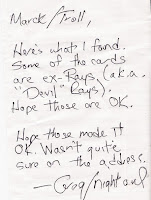 Marck/Troll,
Here's what I found.
Some of the cards
are ex-Rays (a.k.a.
"Devil" Rays).
Hope those are OK.
Hope those made it
OK. Wasn't quite
sure on the address.
—Greg/nightowl